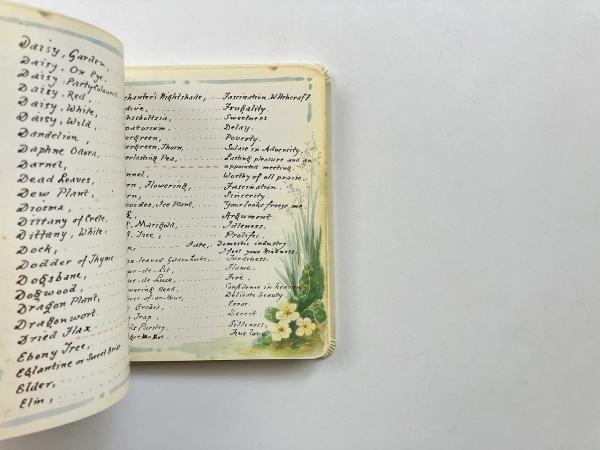 Daisy, Garden,
Daisy, Ox Eye.
Daisy, Partycoloured
Daisy, Red,
Daisy, White,
Daisy, Wild,
Dandelion,
Daphne Odora,
Darnel,
Dead Leaves,
Dew Plant,
Diosma,
Dittany of Crete,
Dittany, White,
Dock,
Dodder of Thyme
Dogsbane,
Dogwood,
Dragon Plant,
Dragonwort
Dried Flax
Ebony Tree,
Eglantine or Sweet Briar
Elder,
Elm,
chanter's Nightshade, Fascination. Witchcraft
dive, Frugality.
chscholtzia, Sweetness
patorium. Delay.
ergreen, Poverty.
ergreen, Thorn, Solace in Adversity.
erlasting Pea, Lasting pleasure and an
appointed meeting.
nnel, Worthy of all praise.
rn, Flowering, Fascination.
rn, Sincerity
coides, Ice Plant. Your looks freeze me.
g, Argument
g, Marigold, Idleness.
g, Tree, Prolific.
x, Fate, Domestic industry
I feel your kindness.
x-leaved Golden Locks, Tardiness.
ur-de-Lis, Flame.
ur-de-Luce, Fire.
wering Reed, Confidence in heaven
wer-of-an-Hour, Delicate beauty
Orchis, Error.
Trap, Deceit
l's Parsley, Silliness,
get Me Not True love